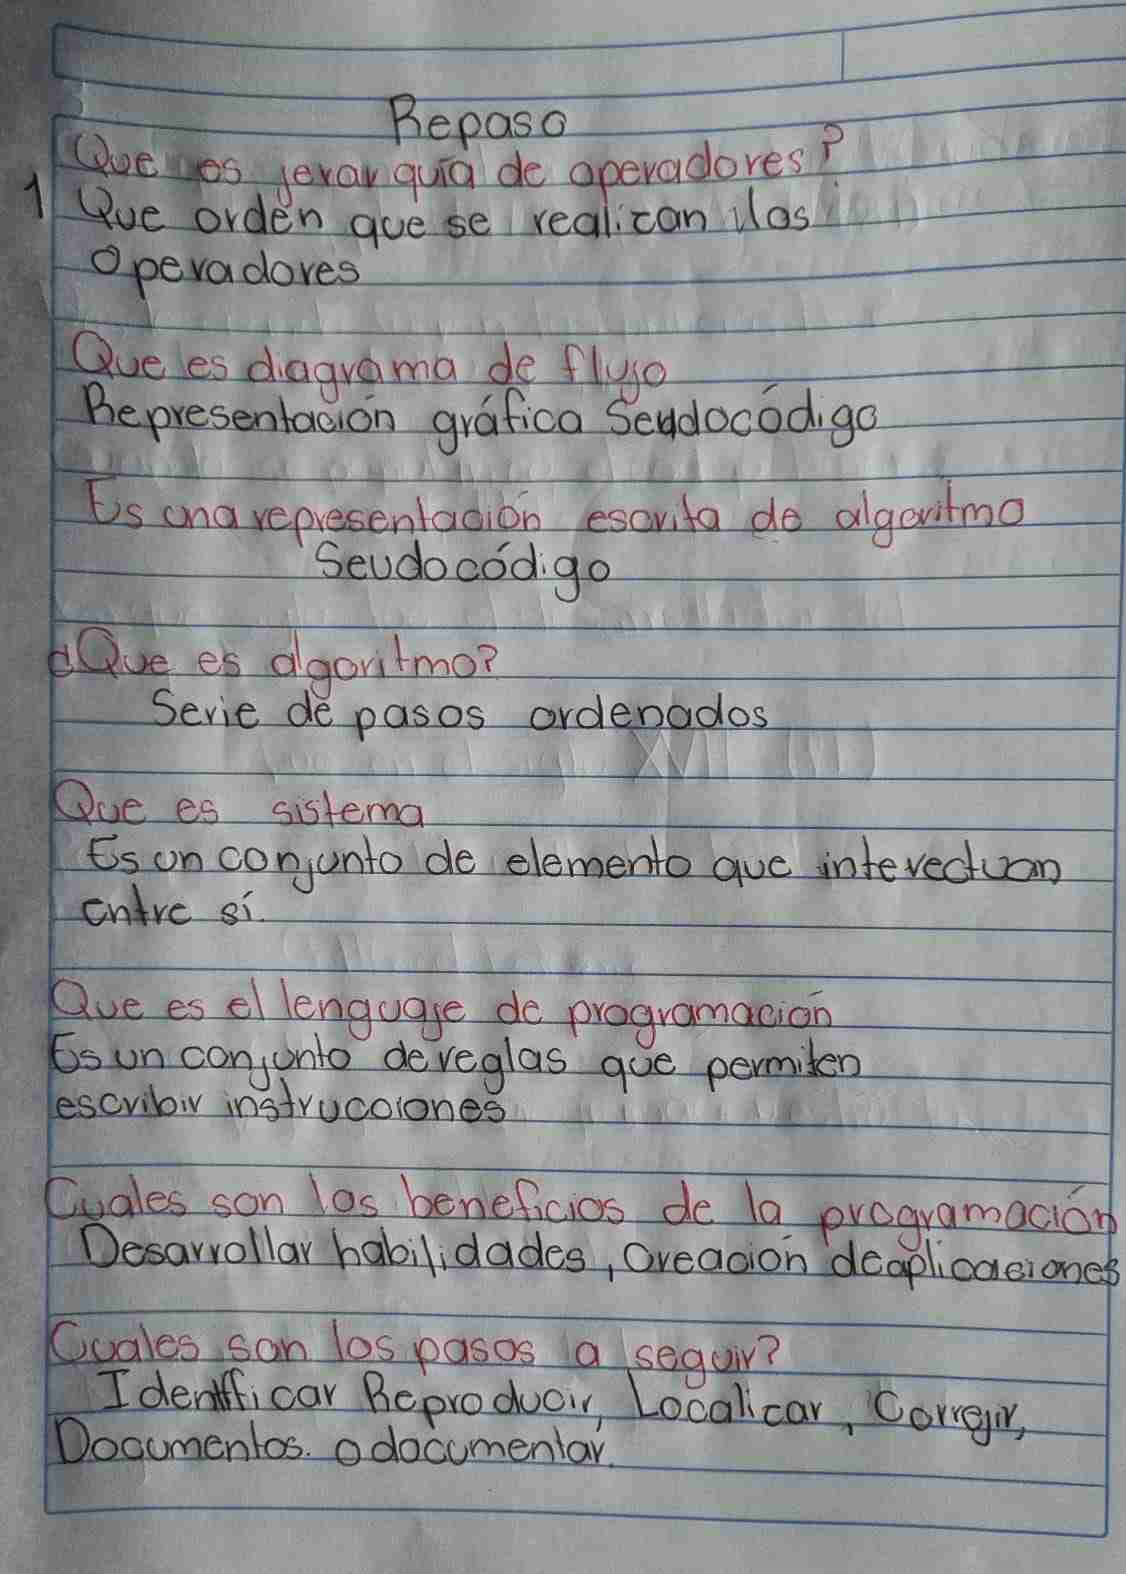 Repaso
Que es jerarquia de operadores?
1 Que orden que se realizan las
Operadores
Que es diagrama de flujo
Representación gráfica Seudocódigo
Es una representación escrita de algoritmo
Seudocódigo
¿Que es algoritmo?
Serie de pasos ordenados
Que es sistema
Es un conjunto de elemento que interectuan
entre sí.
Que es el lenguaje de programación
Es un conjunto de reglas que permiten
escribir instrucciones
Cuales son los beneficios de la programación
Desarrollar habilidades, Creación de aplicaciones
Cuales son los pasos a seguir?
Identificar Reproducir, Localicar, Correjir,
Documentos. o documentar.